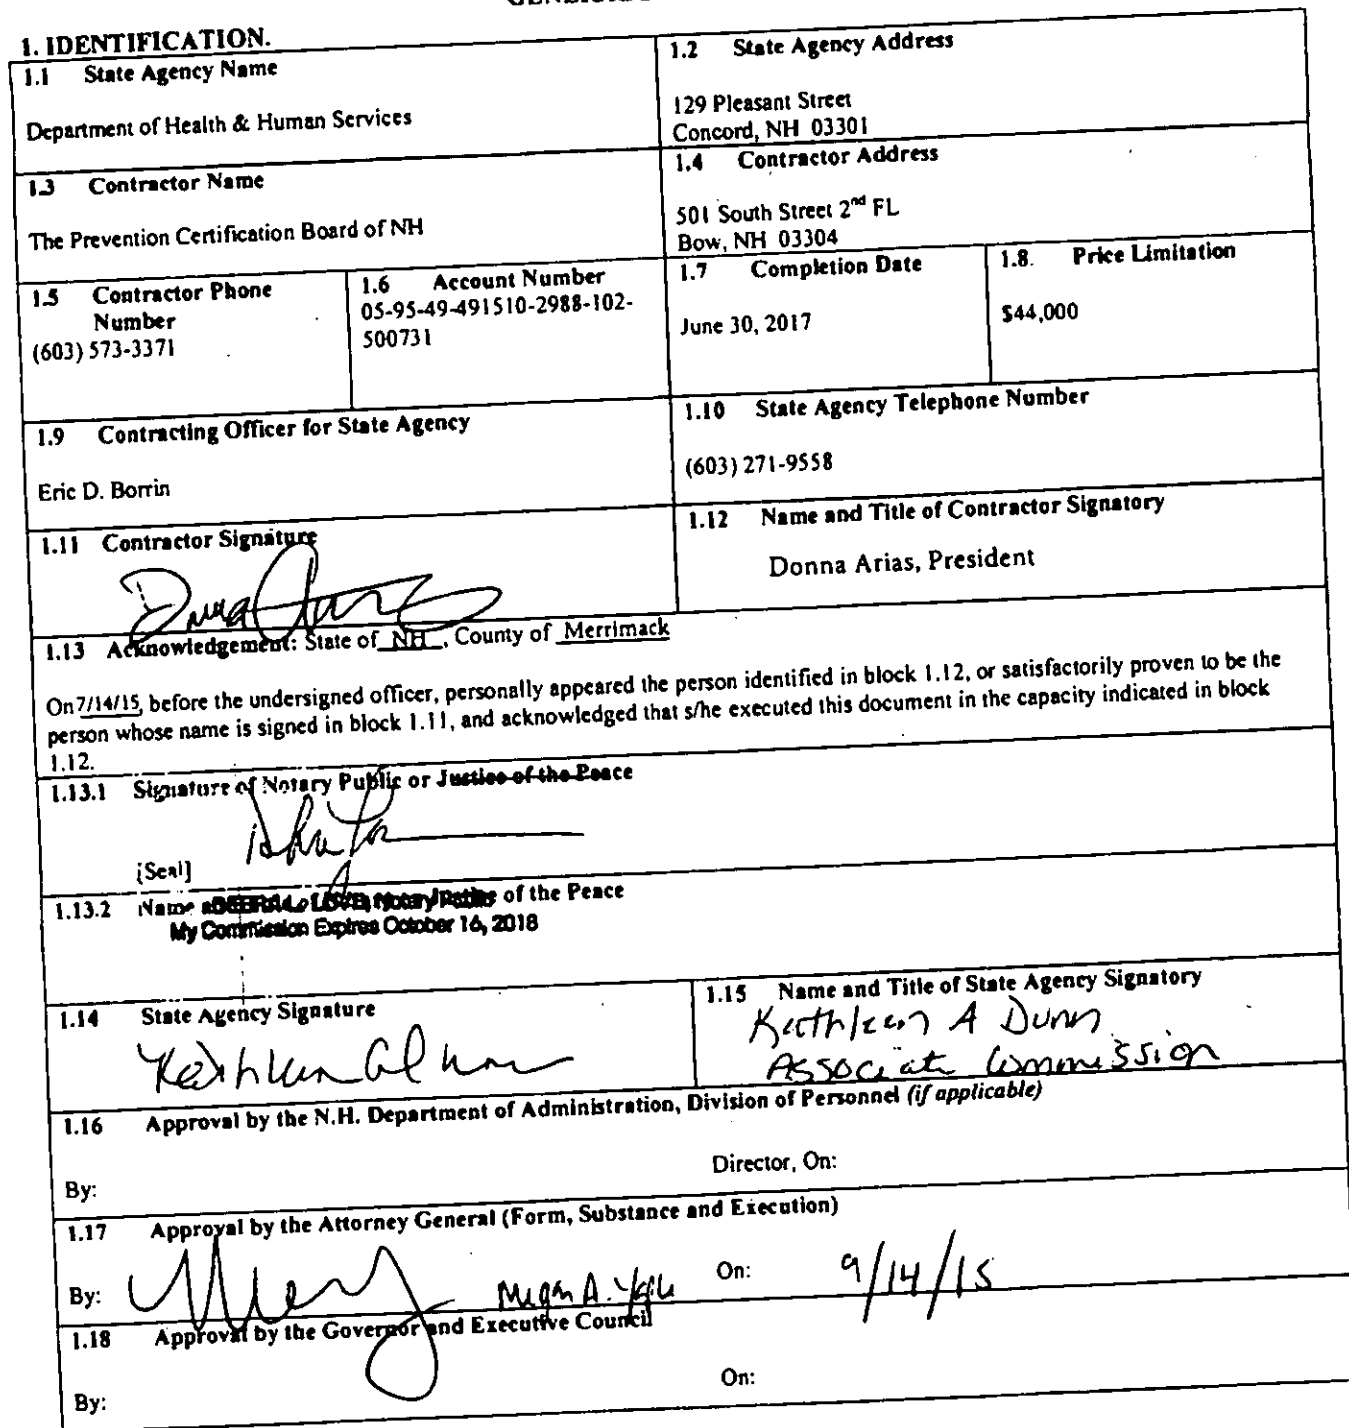 1. IDENTIFICATION.
1.1 State Agency Name
Department of Health & Human Services
1.2 State Agency Address
129 Pleasant Street
Concord, NH 03301
1.3 Contractor Name
The Prevention Certification Board of NH
1.4 Contractor Address
501 South Street 2nd FL
Bow, NH 03304
1.5 Contractor Phone
Number
(603) 573-3371
1.6 Account Number
05-95-49-491510-2988-102-
500731
1.7 Completion Date
June 30, 2017
1.8. Price Limitation
$44,000
1.9 Contracting Officer for State Agency
Eric D. Borrin
1.10 State Agency Telephone Number
(603) 271-9558
1.11 Contractor Signature
1.12 Name and Title of Contractor Signatory
Donna Arias, President
1.13 Acknowledgement: State of NH, County of Merrimack
On 7/14/15, before the undersigned officer, personally appeared the person identified in block 1.12, or satisfactorily proven to be the
person whose name is signed in block 1.11, and acknowledged that s/he executed this document in the capacity indicated in block
1.12.
1.13.1 Signature of Notary Public or Justice of the Peace
[Seal]
1.13.2 Name of the Peace
My Commission Expires October 16, 2018
1.14 State Agency Signature
1.15 Name and Title of State Agency Signatory
Kathleen A Dunn
Associate Commission
1.16 Approval by the N.H. Department of Administration, Division of Personnel (if applicable)
By: Director, On:
1.17 Approval by the Attorney General (Form, Substance and Execution)
By: Megan A. On: 9/14/15
1.18 Approval by the Governor and Executive Council
By: On: